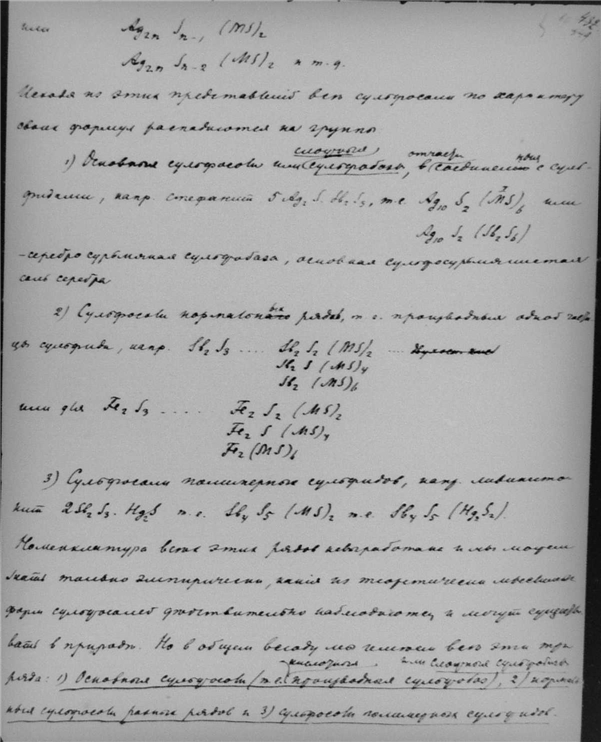 или Ag₂ₙ Sₙ₋₁ (MS)₂
Ag₂ₙ Sₙ₋₂ (MS)₂ и т.д.
Исходя из этих представленій всѣ сульфосоли по характеру
своих формул распадаются на группы
сложныя отчасти ныя
1) Основныя сульфосоли или (сульфобазы, в (соединени с суль-
фидами, напр. стефанит 5 Ag₂ S. Sb₂ S₃, т.е. Ag₁₀ S₂ (MS)₆ или
Ag₁₀ S₂ (Sb₂ S₆)
-серебро сурьмяная сульфобаза, основная сульфосурьмянистая
соль серебра
2) Сульфосоли нормальных рядов, т.е. производныя одной части-
цы сульфида, напр. Sb₂ S₃ .... Sb₂ S₂ (MS)₂ ....
Sb₂ S (MS)₄
Sb₂ (MS)₆
или для Fe₂ S₃ .... Fe₂ S₂ (MS)₂
Fe₂ S (MS)₄
Fe₂ (MS)₆
3) Сульфосоли полимерных сульфидов, напр. ливингсто-
нит 2Sb₂ S₃. Hg₂S т.е. Sb₄ S₅ (MS)₂ т.е. Sb₄ S₅ (Hg₂S₂).
Номенклатура всѣх этих рядов невыработана и мы можем
знать только эмпирически, какія из теоретически мыслимых
форм сульфосолей дѣйствительно наблюдаются и могут существо-
вать в природѣ. Но в общем всюду мы имѣем всѣ эти три
кислотныя или сложныя сульфобазы
ряда: 1) Основныя сульфосоли (т.е. производныя сульфобаз), 2) нормаль-
ныя сульфосоли разных рядов и 3) сульфосоли полимерных сульфидов.